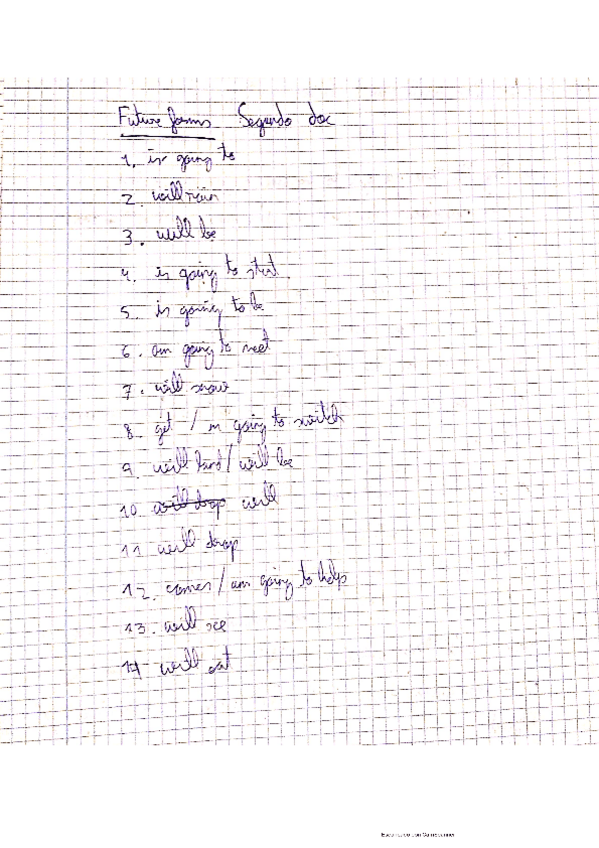 Future forms Segundo doc
1. is going to
2. will rain
3. will be
4. is going to start
5. is going to be
6. am going to meet
7. will snow
8. get / m going to switch
9. will land / will be
10 will drop will
11 will drop
12. comes / am going to help
13. will see
14 - will eat